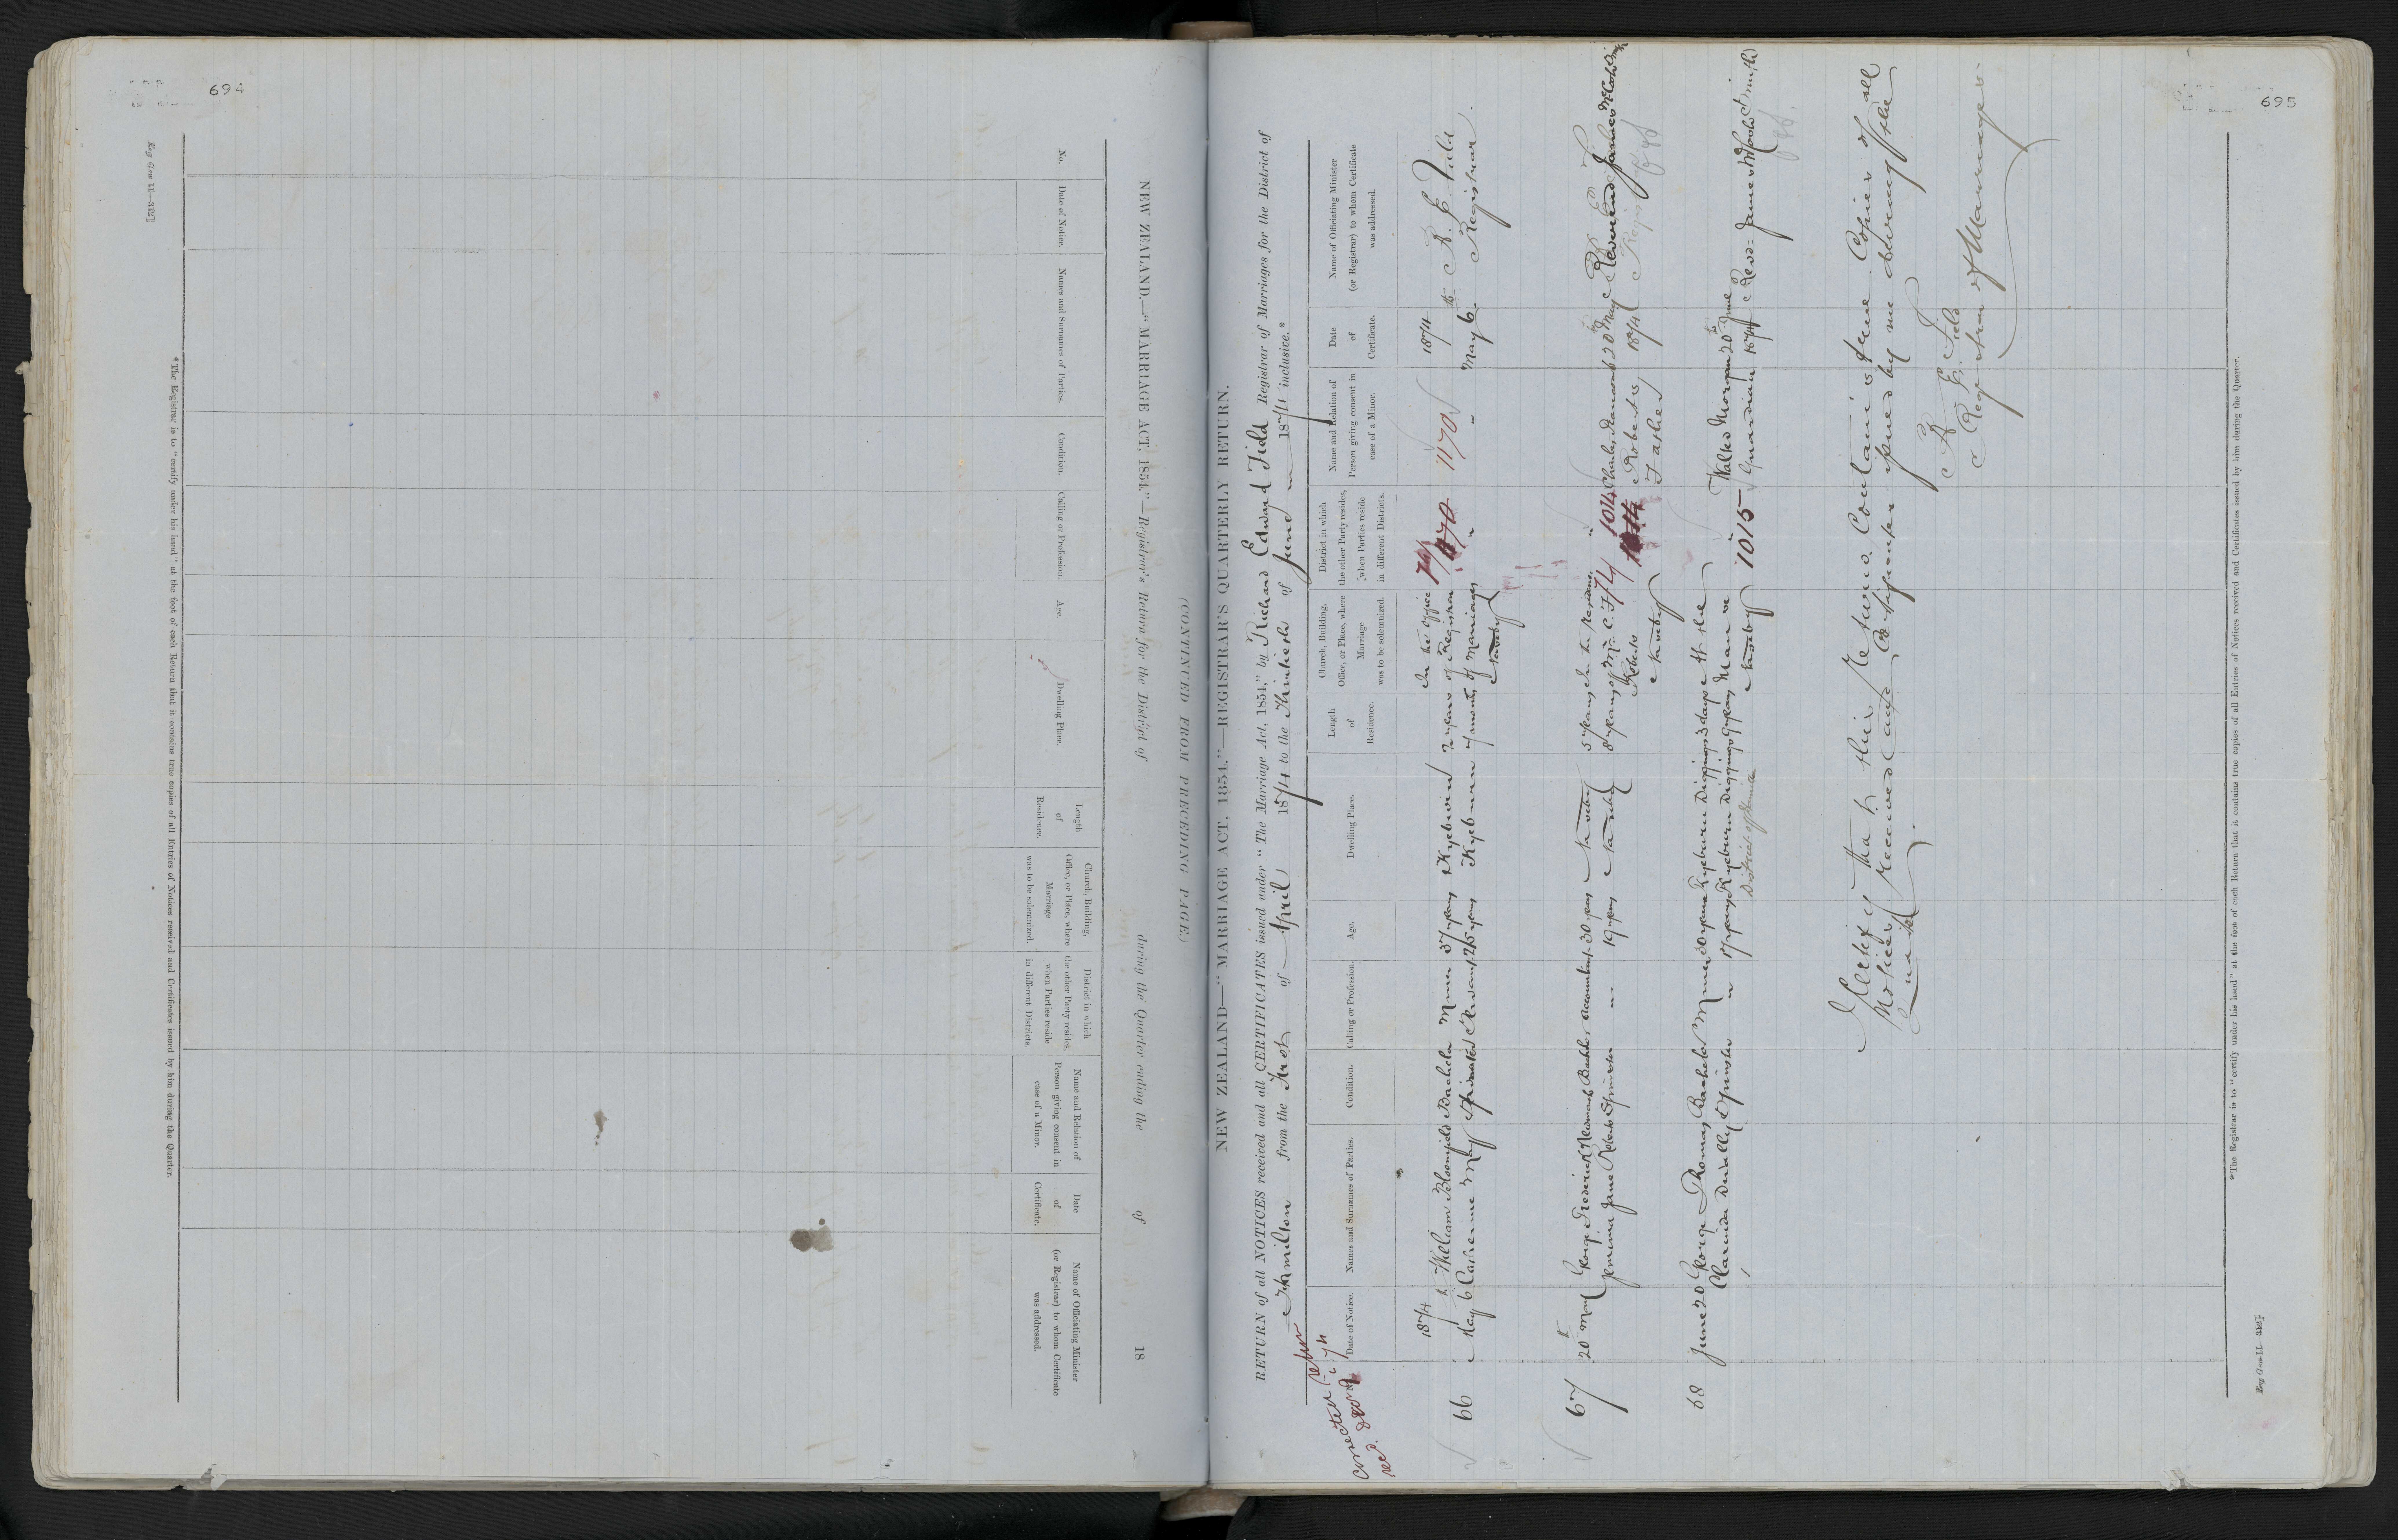 694
Reg Gen 11—3/2]
NEW ZEALAND.—"MARRIAGE ACT, 1854."—Registrar's Return for the District of during the Quarter ending the of 18
(CONTINUED FROM PRECEDING PAGE.)
No.
Date of Notice.
Names and Surnames of Parties.
Condition.
Calling or Profession.
Age.
Dwelling Place.
Length
of
Residence.
Church, Building,
Office, or Place, where
Marriage
was to be solemnized.
District in which
the other Party resides,
when Parties reside
in different Districts.
Name and Relation of
Person giving consent in
case of a Minor.
Date
of
Certificate.
Name of Officiating Minister
(or Registrar) to whom Certificate
was addressed.
*The Registrar is to "certify under his hand" at the foot of each Return that it contains true copies of all Entries of Notices received and Certificates issued by him during the Quarter.
695
NEW ZEALAND—"MARRIAGE ACT, 1854."—REGISTRAR'S QUARTERLY RETURN.
RETURN of all NOTICES received and all CERTIFICATES issued under "The Marriage Act, 1854," by Richard Edward Field Registrar of Marriages for the District of
Hamilton from the First of April 1874 to the Thirtieth of June 1874 inclusive.*
corrected return
recd.
Date of Notice.
Names and Surnames of Parties.
Condition.
Calling or Profession.
Age.
Dwelling Place.
Length
of
Residence.
Church, Building,
Office, or Place, where
Marriage
was to be solemnized.
District in which
the other Party resides,
when Parties reside
in different Districts.
Name and Relation of
Person giving consent in
case of a Minor.
Date
of
Certificate.
Name of Officiating Minister
(or Registrar) to whom Certificate
was addressed.
1874 In the Office 74/ 1170 1874 R. E. Field
66 May 6th William Bloomfield Bachelor Miner 37 years Kyeburn 2 years of Registrar 1170 " May 6th Registrar
Catherine May Spinster Servant 25 years Kyeburn 4 months of Marriages
Naseby
67 20th May George Frederick Newman Bachelor accountant 30 years Naseby 5 years In the residence " Charles 20th May Reverend James McCosh Smith
Jemima Jane Roberts Spinster " 19 years Naseby 8 years of Mr C. F. 74/ 1014 Roberts 1874
Roberts Father
Naseby
68 June 20 George Thomas Bachelor Miner 30 years Kyeburn Diggings 3 days At the Walter Morgan 20th June Revd James McCosh Smith
Spinster " 17 years Kyeburn Diggings 9 years Manse 1015 Guardian 1874
Naseby
I Certify that this Return Contains true Copies of all
Notices received and Certificates issued by me during the
Quarter
R E Field
Registrar of Marriages
*The Registrar is to "certify under his hand" at the foot of each Return that it contains true copies of all Entries of Notices received and Certificates issued by him during the Quarter.
Reg Gen 11—3/2]